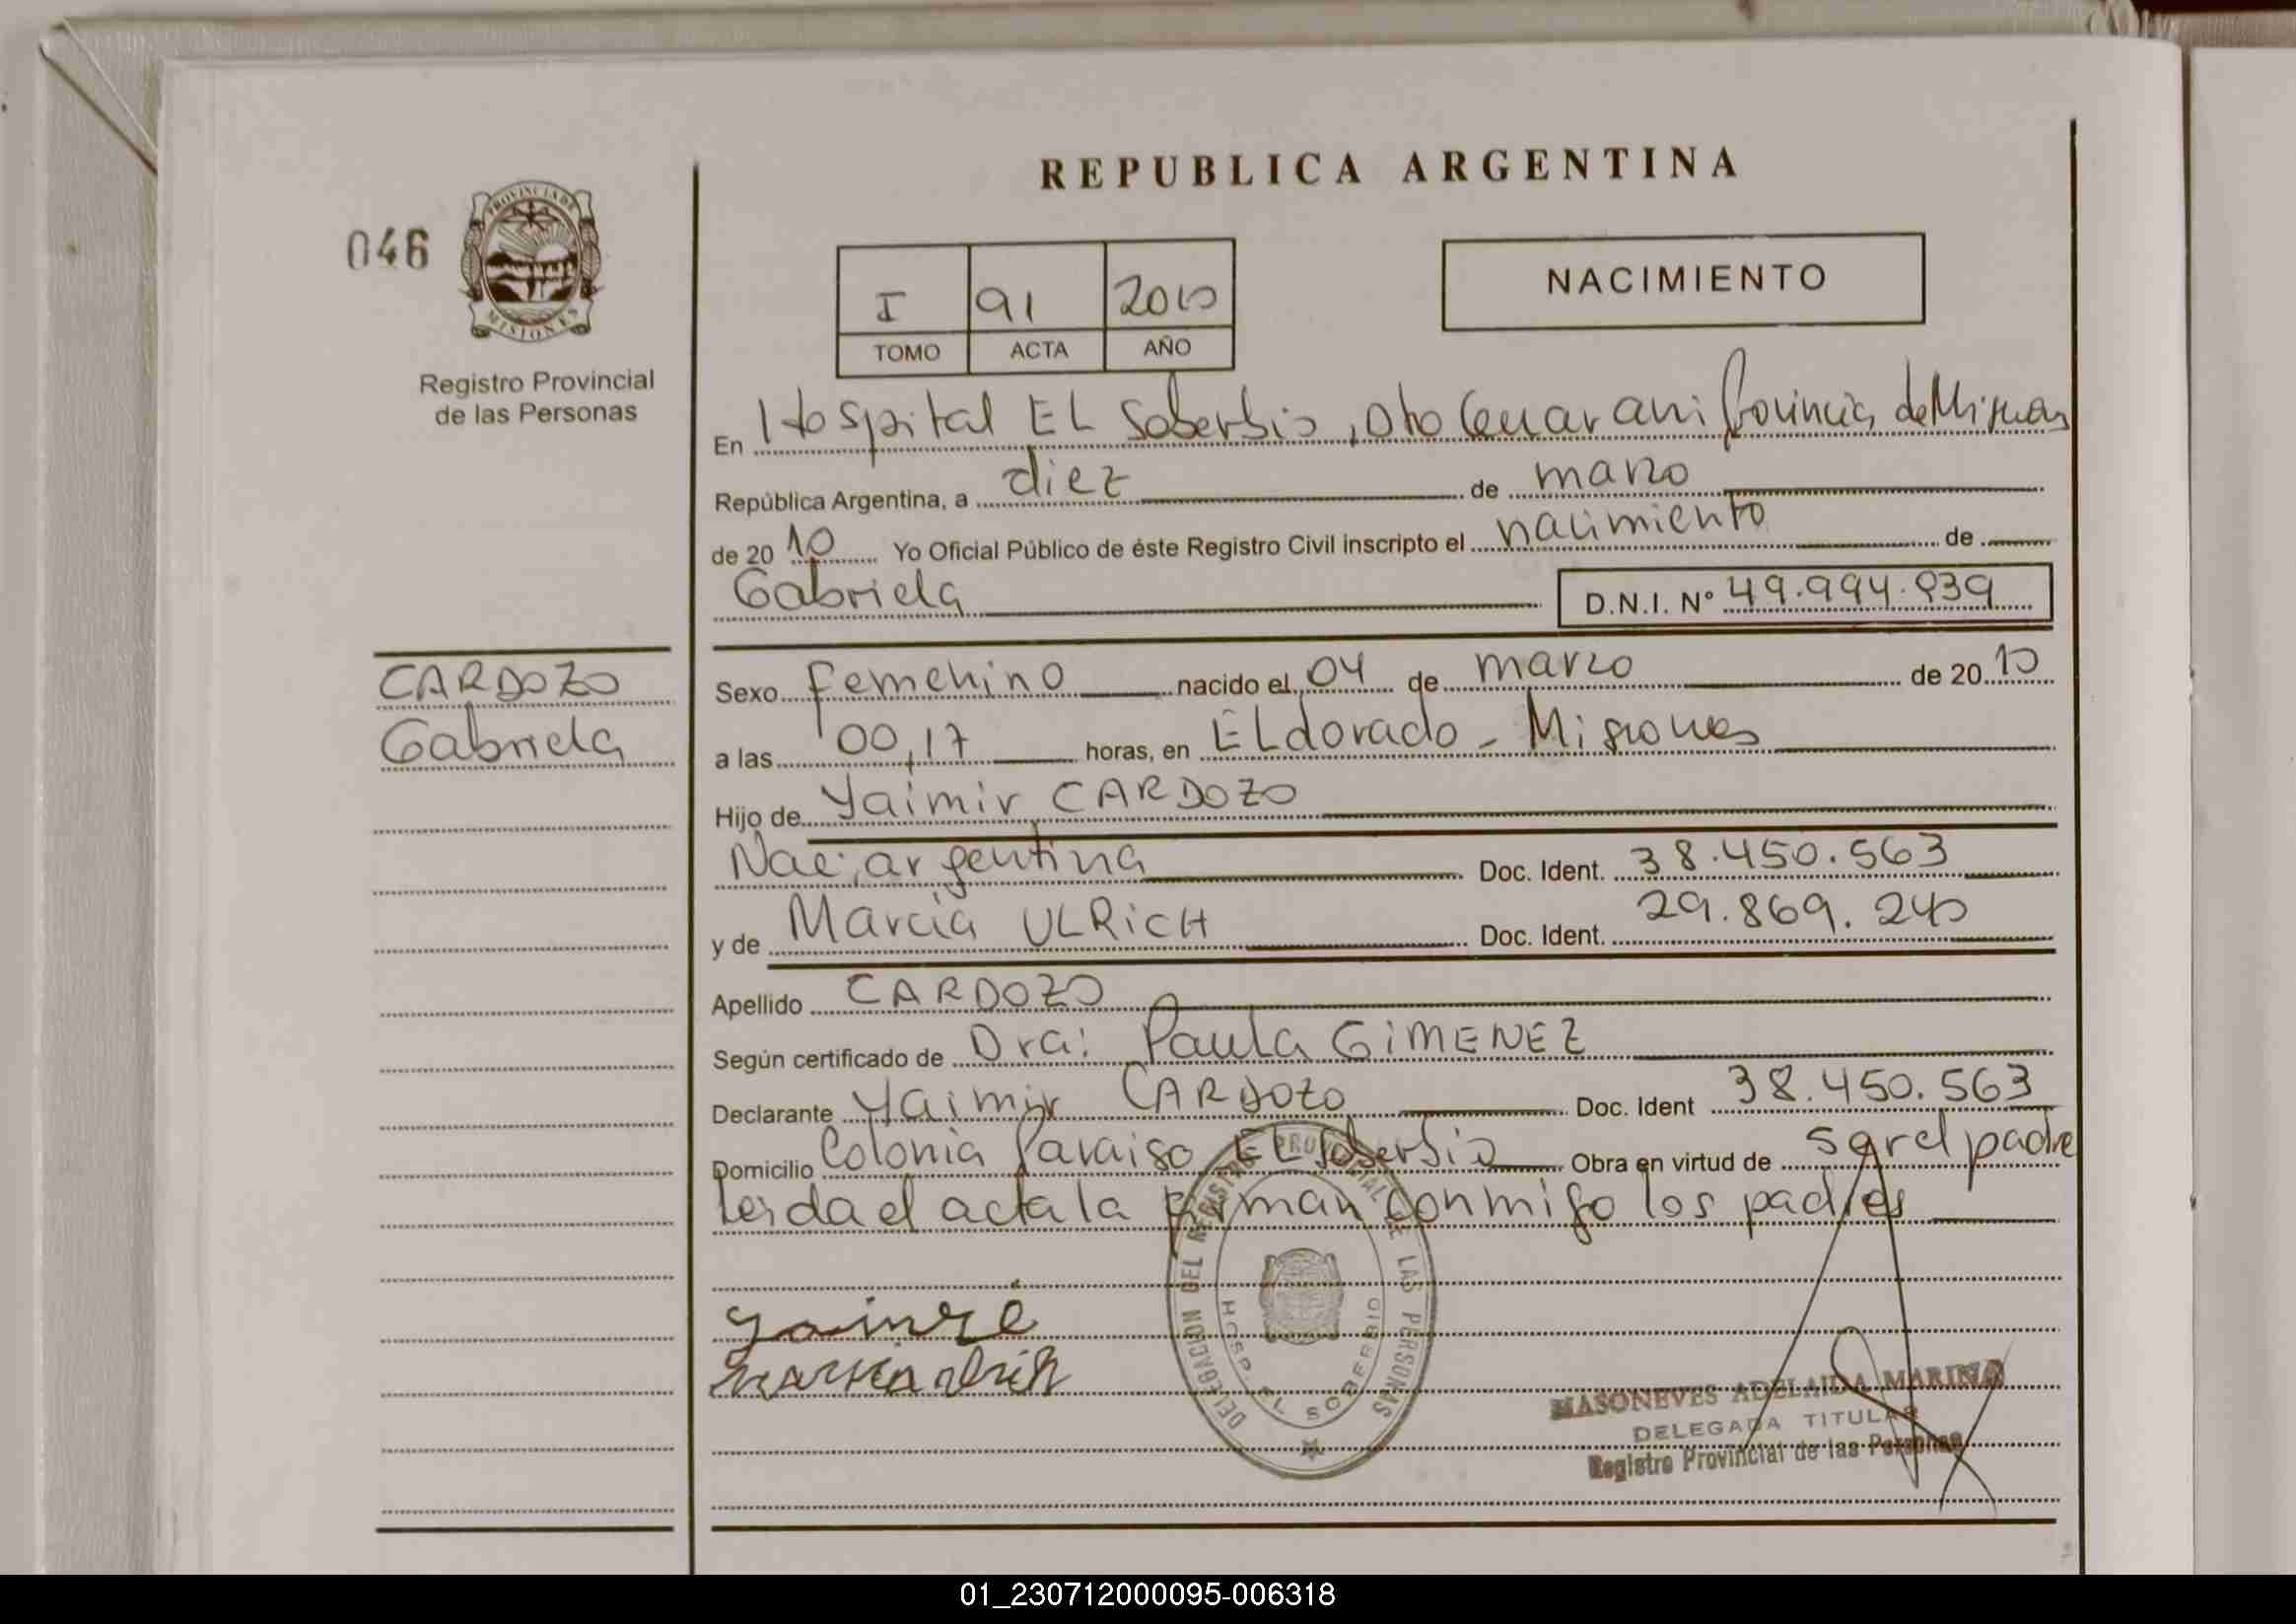 REPUBLICA ARGENTINA
046
PROVINCIA DE
MISIONES
Registro Provincial
de las Personas
I 91 2010
TOMO ACTA AÑO
NACIMIENTO
En Hospital EL Soberbio, Dto Guarani Provincia de Misiones
República Argentina, a diez de marzo
de 20 10 Yo Oficial Público de éste Registro Civil inscripto el nacimiento de
Gabriela D.N.I. Nº 49.994.839
CARDOZO
Gabriela
Sexo femenino nacido el 04 de marzo de 20 10
a las 00,17 horas, en ELdorado - Misiones
Hijo de Yaimir CARDOZO
Nac; argentina Doc. Ident. 38.450.563
y de Marcia ULRICH Doc. Ident. 29.869.240
Apellido CARDOZO
Según certificado de Dra: Paula GIMENEZ
Declarante Yaimir CARDOZO Doc. Ident 38.450.563
Domicilio Colonia Paraiso EL Soberbio Obra en virtud de ser el padre
Leida el acta la firman conmigo los padres
DELEGACION DEL REGISTRO PROVINCIAL DE LAS PERSONAS
HOSP. EL SOBERBIO
MASONEVES ADELAIDA MARINA
DELEGADA TITULAR
Registro Provincial de las Personas
01_230712000095-006318